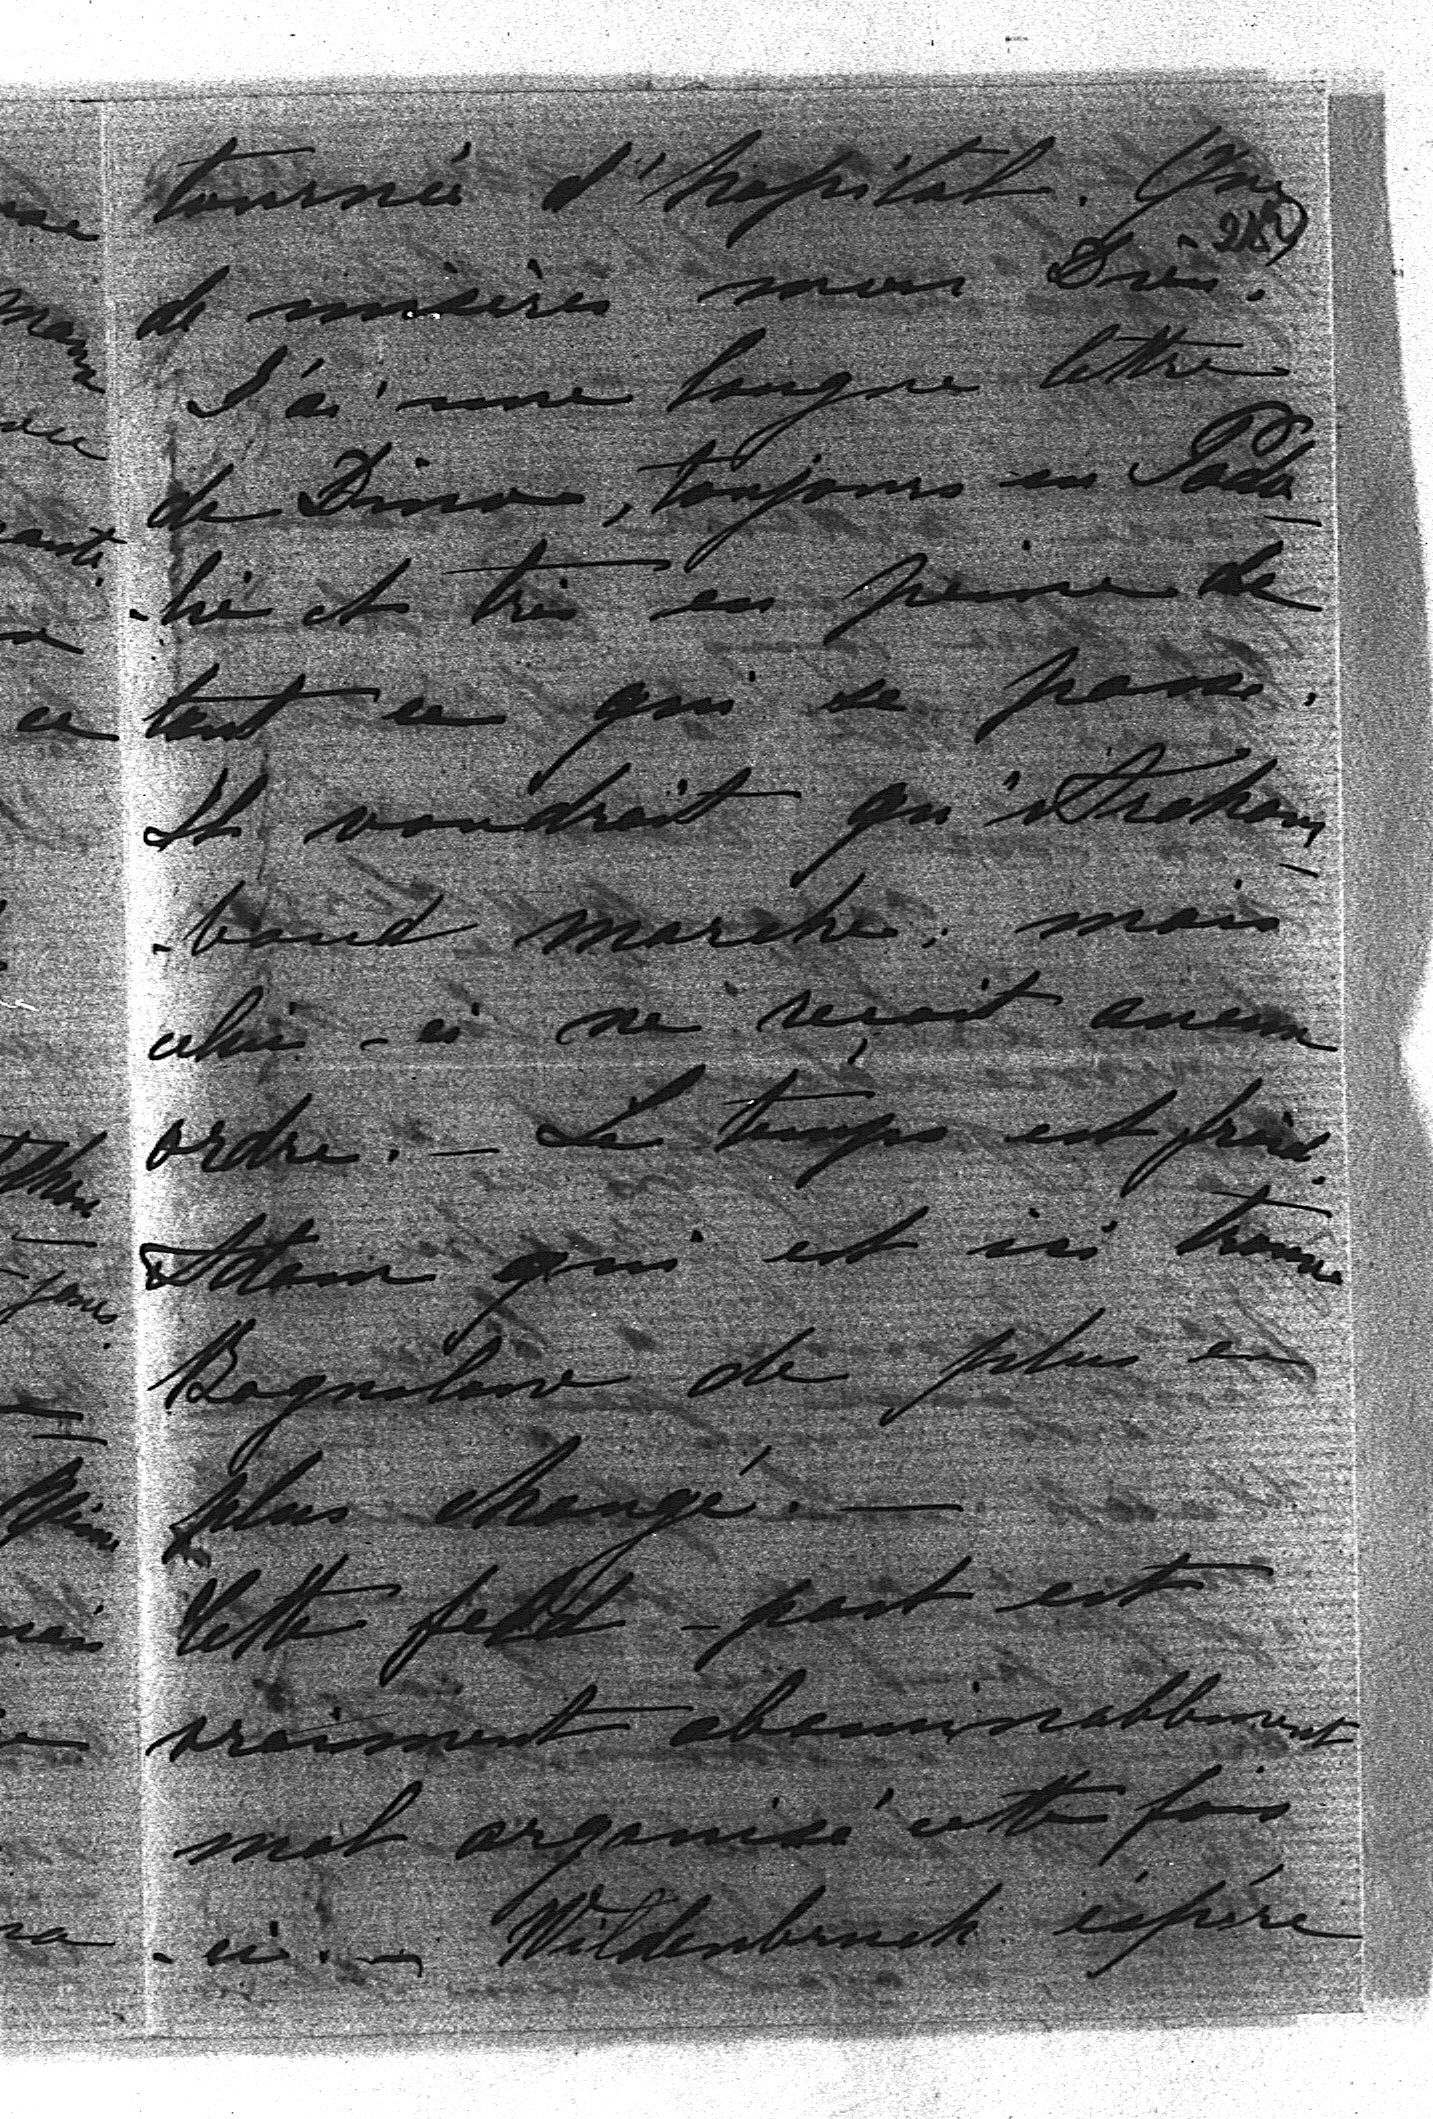 tournée d'hopital. Que
de misères mon Dieu.
J'ai une longue lettre
de Dino, toujours en Podo-
-lie et très en peine de
tout ce qui se passe.
Il voudrait qu'
-bond marche, mais
celui-ci ne reçoit aucun
ordre. — Le temps est froid.
Adam qui est ici trouve
Boguslaw de plus en
plus changé. —
Cette feld-post est
vraiment abominablement
mal organisé cette fois
-ci. — Wildenbruch éspère